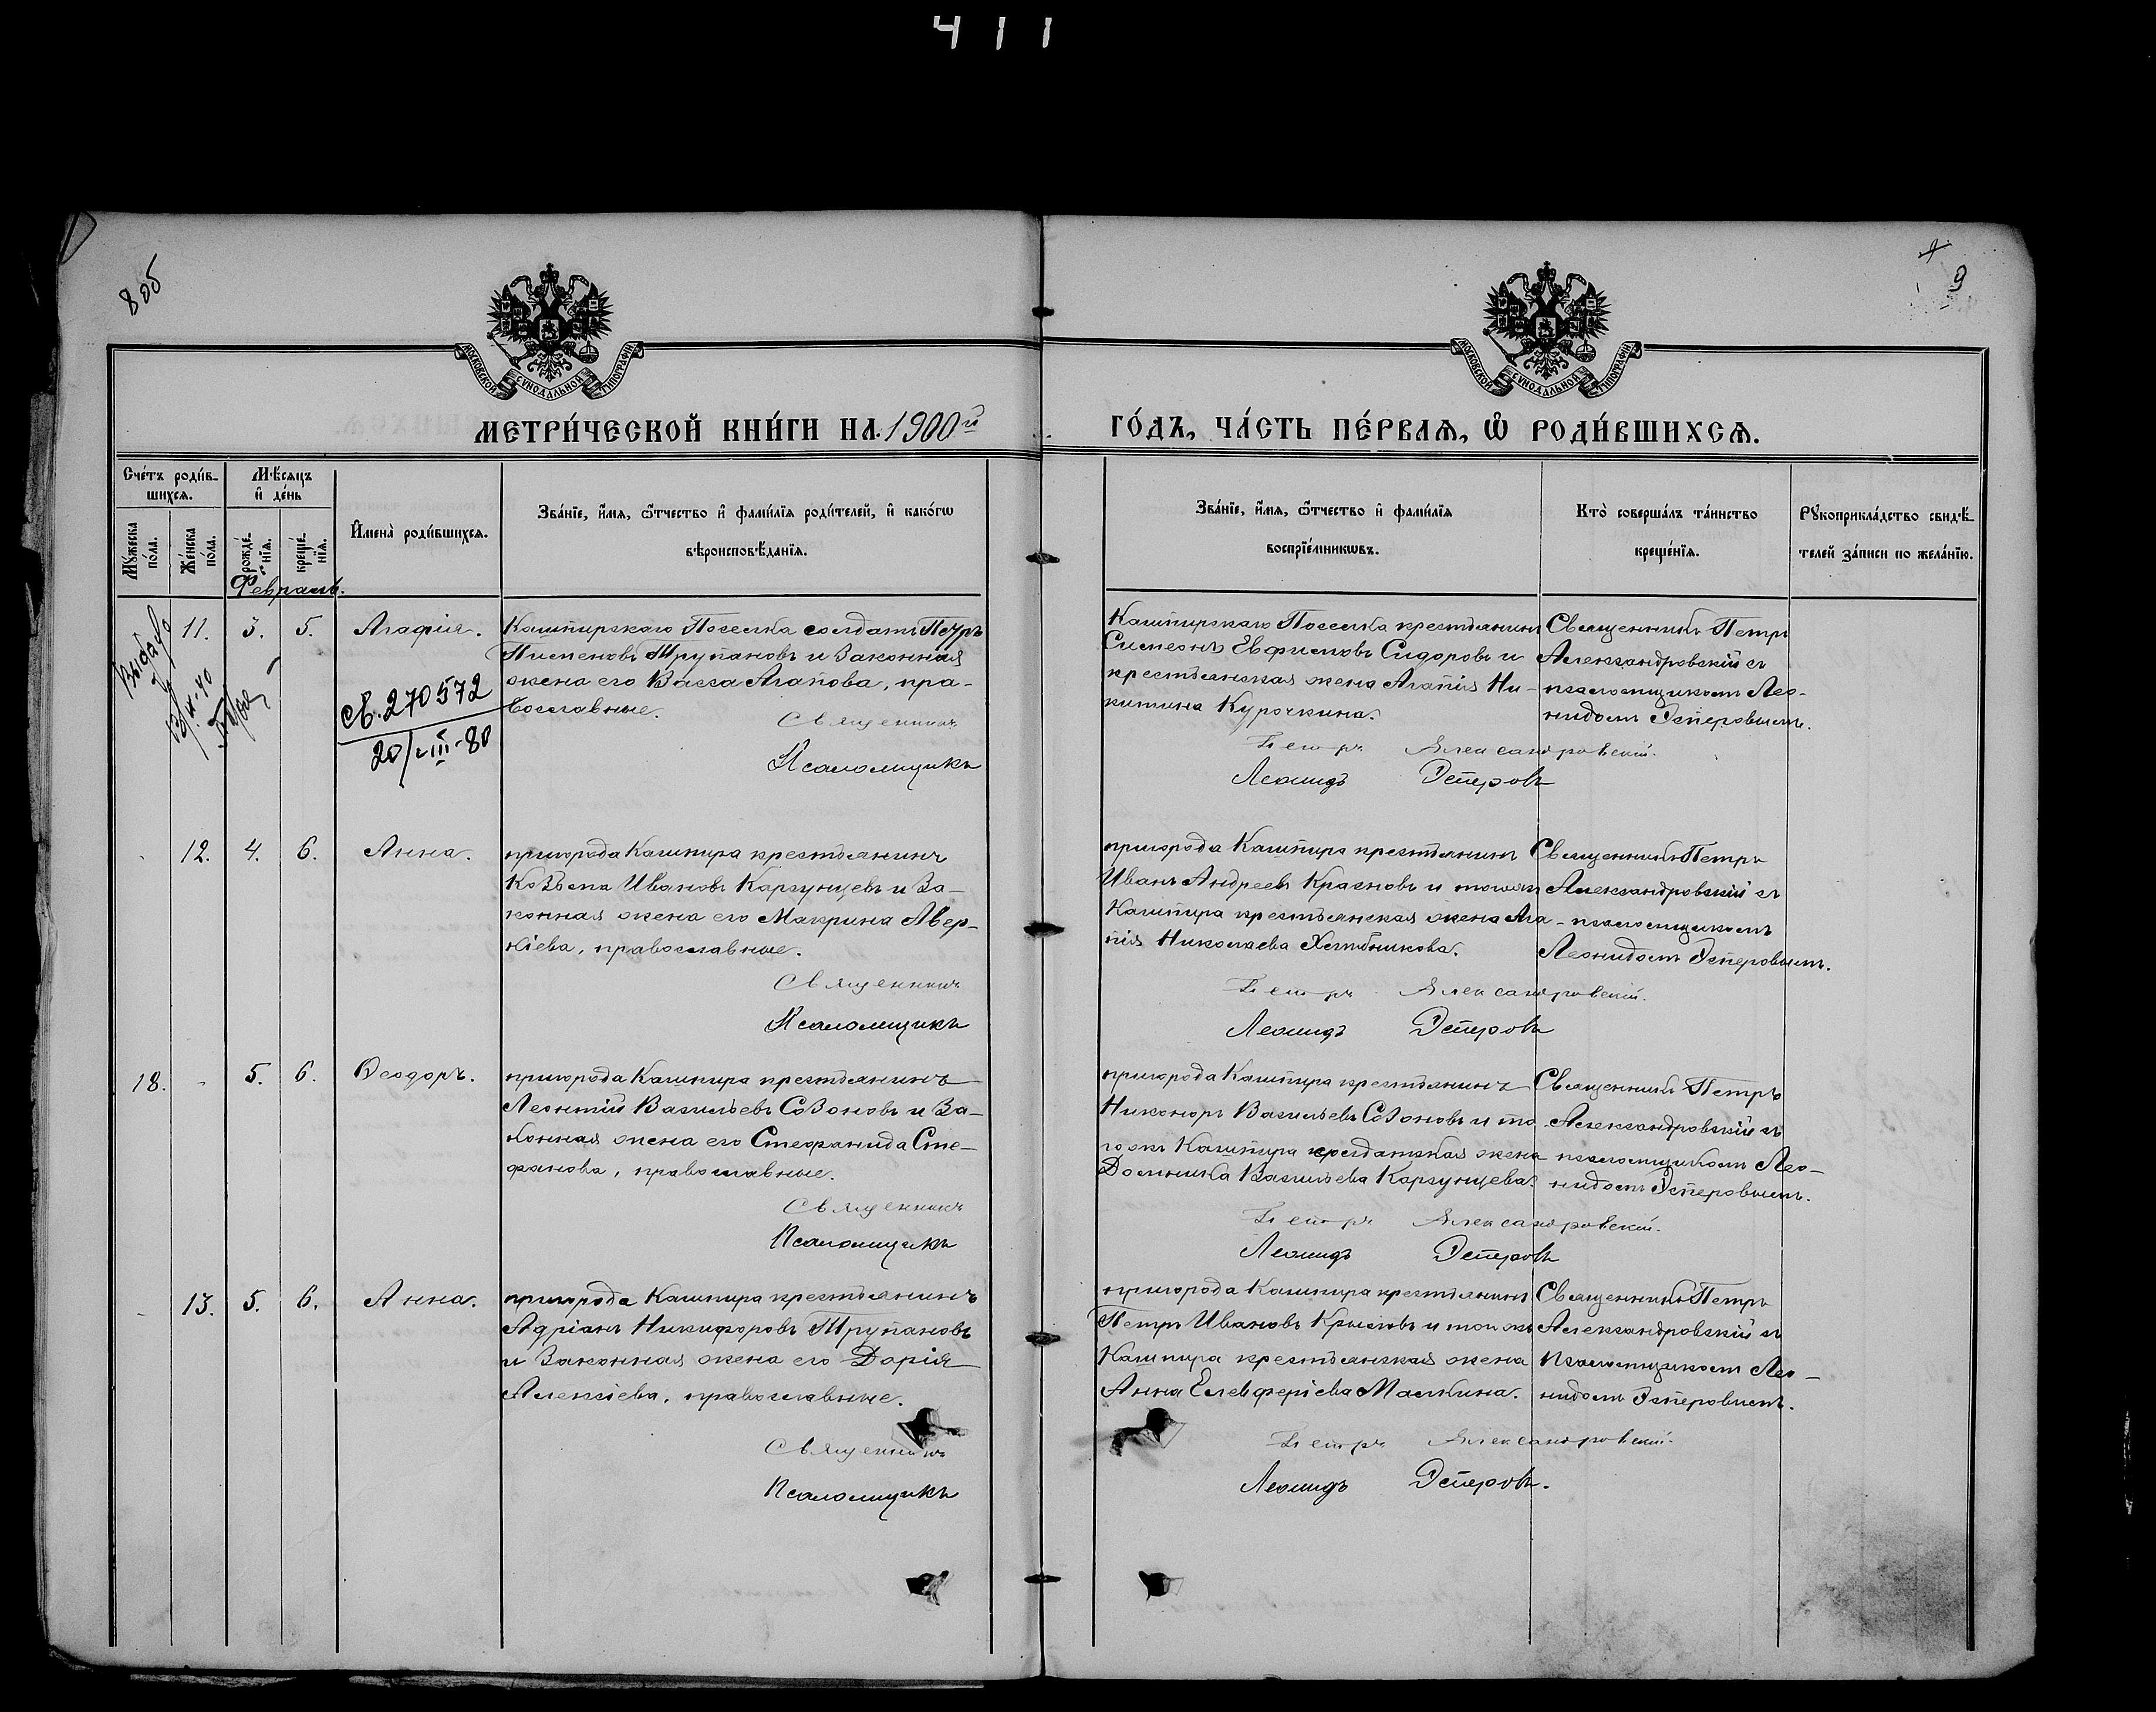 411
805
9
МОСКОВСКОЙ СѴНОДАЛЬНОЙ ТИПОГРАФІИ
МОСКОВСКОЙ СѴНОДАЛЬНОЙ ТИПОГРАФІИ
МЕТРИ́ЧЕСКОЙ КНИ́ГИ НА 1900й
ГО́ДЪ, ЧА́СТЬ ПЕ́РВАѦ, Ѽ РОДИ́ВШИХСѦ.
Сче́тъ роди́в-
шихсѧ.
Мꙋ́жеска
по́ла.
Же́нска
по́ла.
Мѣ́сяцъ
и҆ де́нь
рожде́-
нїѧ.
креще́-
нїѧ.
И҆мена̀ роди́вшихсѧ.
Зва́нїе, и҆́мя, ѻ҆́тчество и҆ фами́лїѧ роди́телей, и҆ како́гѡ
вѣроисповѣ́данїѧ.
Зва́нїе, и҆́мя, ѻ҆́тчество и҆ фами́лїѧ
воспрїе́мникѡвъ.
Кто̀ соверша́лъ та́инство
креще́нїѧ.
Рꙋкоприкла́дство свидѣ́-
телей за́писи по жела́нїю.
Февраль.
11. 3. 5. Агафія.
св. 270572
20/VIII-80
Кашпирскаго Поселка солдатъ Петръ
Пименовъ Трупановъ и законная
жена его Васса Агапова, пра-
вославные.
Священникъ
Псаломщикъ
Кашпирскаго Поселка крестьянинъ
Симеонъ Евфимовъ Сидоровъ и
крестьянская жена Агапія Ни-
китина Курочкина.
Петръ Александровскій.
Леонидъ Эсперовъ
Священникъ Петръ
Александровскій съ
псаломщикомъ Лео-
нидомъ Эсперовымъ.
12. 4. 6. Анна.
пригорода Кашпира крестьянинъ
Козьма Ивановъ Карзунцевъ и за-
конная жена его Макрина Авер-
кіева, православные.
Священникъ
Псаломщикъ
пригорода Кашпира крестьянинъ
Иванъ Андреевъ Красновъ и тогоже
Кашпира крестьянская жена Ага-
пія Николаева Хлебникова.
Петръ Александровскій.
Леонидъ Эсперовъ
Священникъ Петръ
Александровскій съ
псаломщикомъ
Леонидомъ Эсперовымъ.
18. - 5. 6. Ѳеодоръ.
пригорода Кашпира крестьянинъ
Леонтій Васильевъ Созоновъ и за-
конная жена его Стефанида Сте-
фанова, православные.
Священникъ
Псаломщикъ
пригорода Кашпира крестьянинъ
Никоноръ Васильевъ Созоновъ и то
гожъ Кашпира солдатская жена
Домника Васильева Карзунцева.
Петръ Александровскій.
Леонидъ Эсперовъ
Священникъ Петръ
Александровскій съ
псаломщикомъ Лео-
нидомъ Эсперовымъ.
- 13. 5. 6. Анна.
пригорода Кашпира крестьянинъ
Адріанъ Никифоровъ Трупановъ
и законная жена его Дарія
Алексіева, православные.
Священникъ
Псаломщикъ
пригорода Кашпира крестьянинъ
Петръ Ивановъ Крыловъ и тогожъ
Кашпира крестьянская жена
Анна Елевферіева Малкина.
Петръ Александровскій.
Леонидъ Эсперовъ.
Священникъ Петръ
Александровскій съ
Псаломщикомъ Лео-
нидомъ Эсперовымъ.